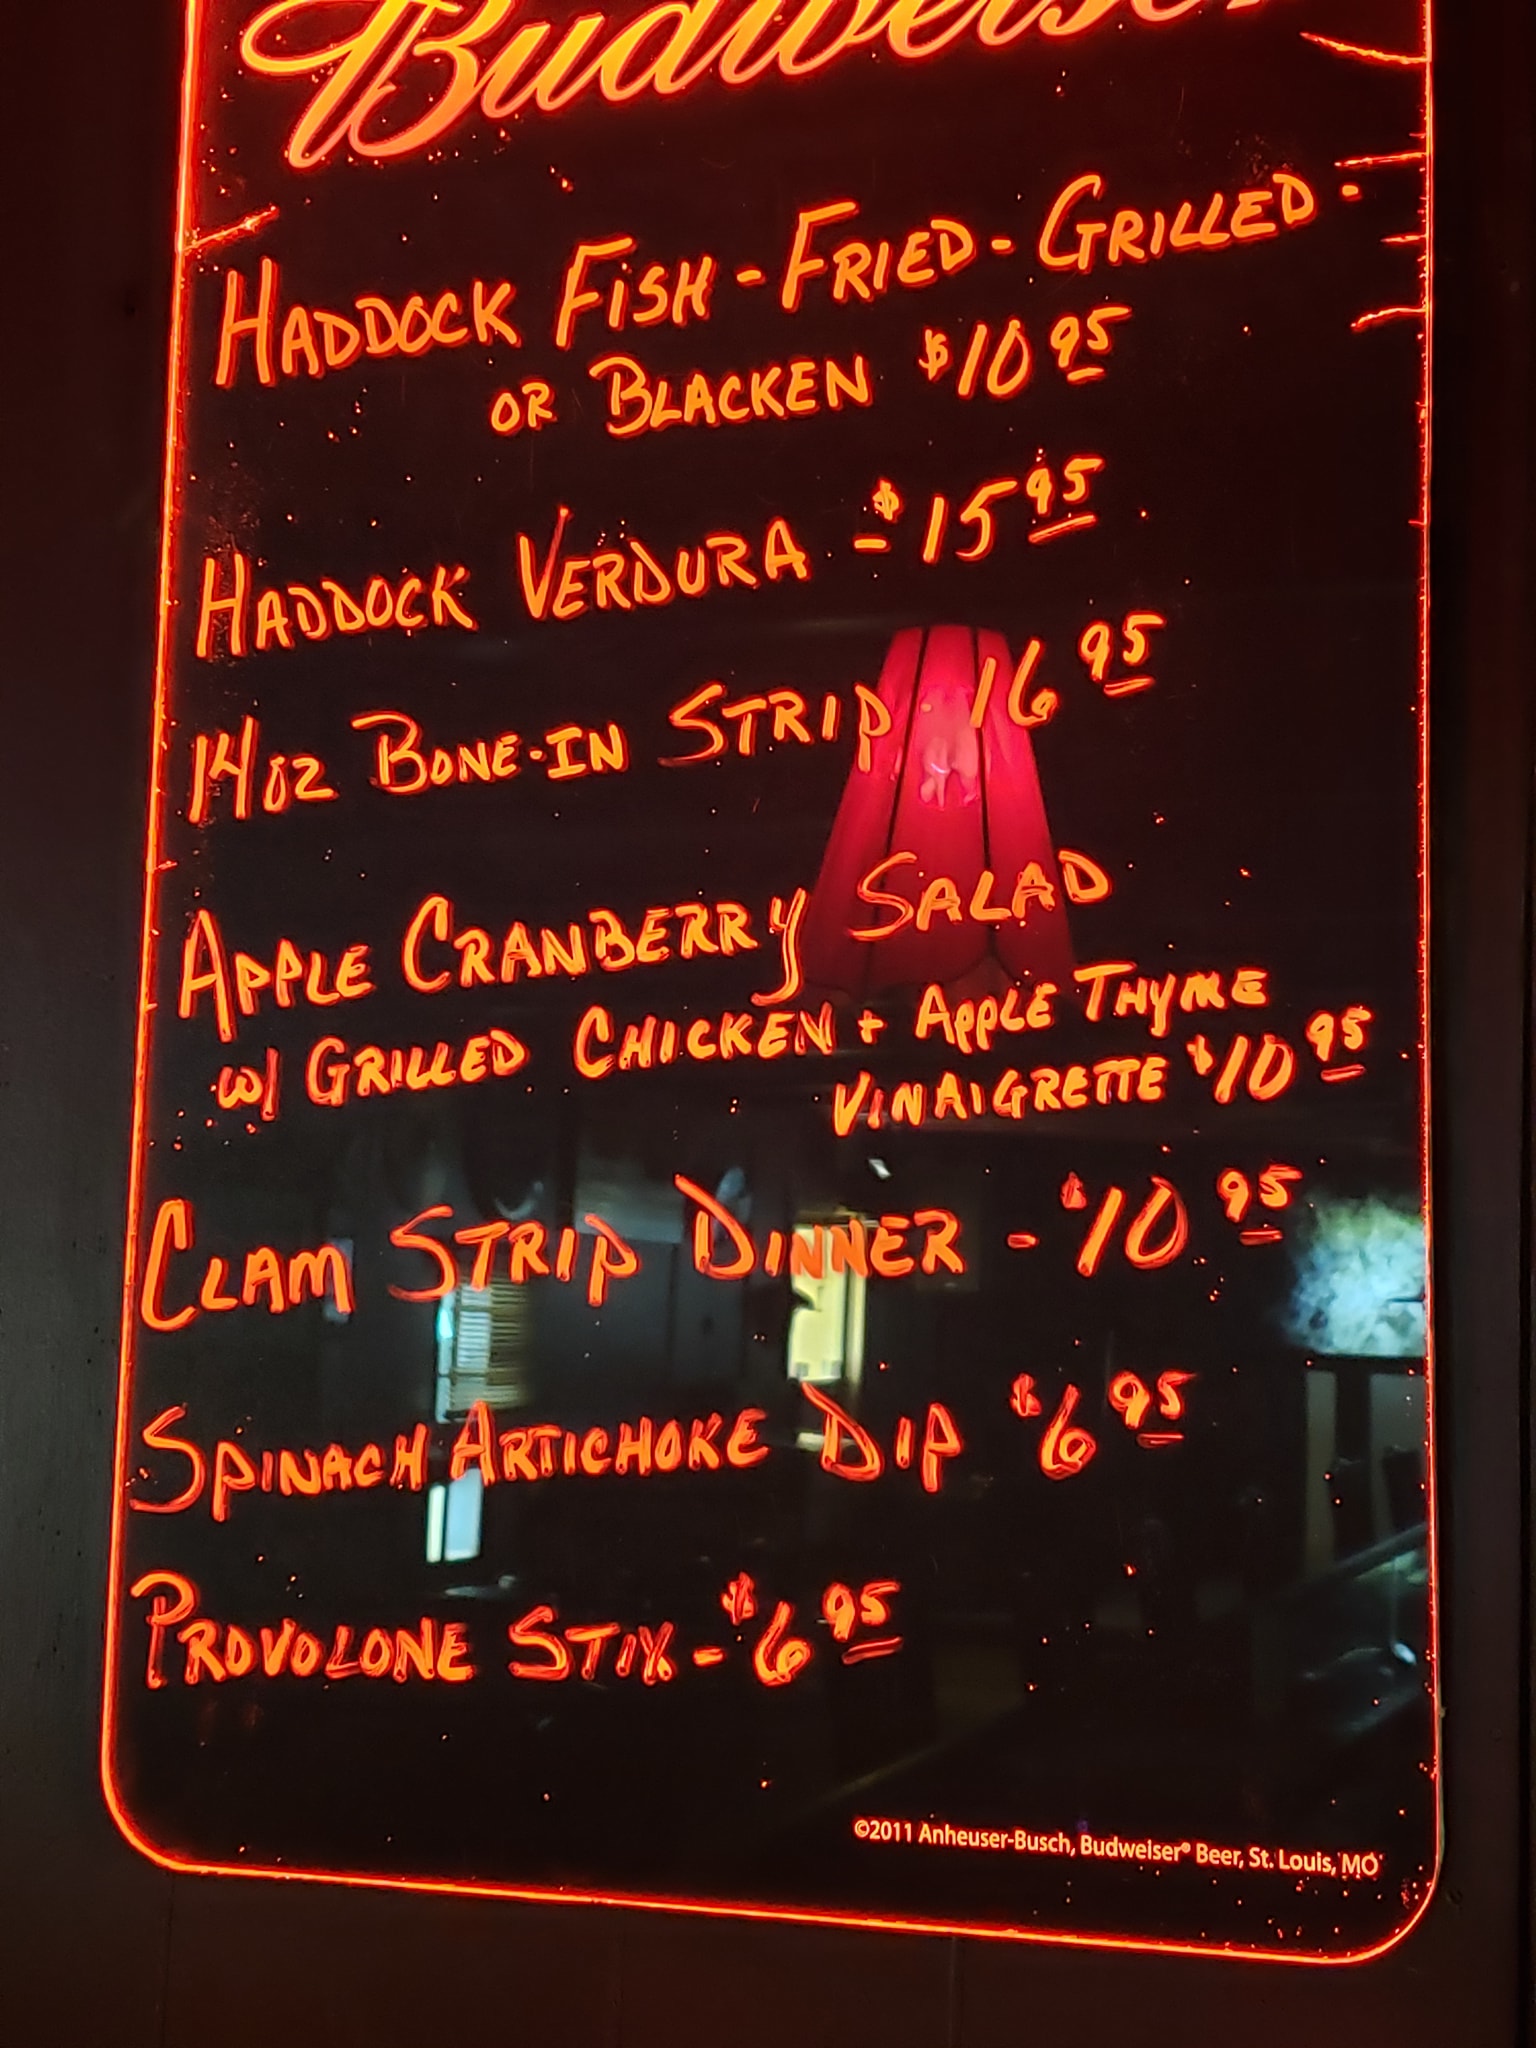 Budweiser
HADDOCK FISH - FRIED - GRILLED -
OR BLACKEN $10 95
HADDOCK VERDURA - $15 95
14 OZ BONE-IN STRIP 16 95
APPLE CRANBERRY SALAD
W/ GRILLED CHICKEN + APPLE THYME
VINAIGRETTE $10 95
CLAM STRIP DINNER - $10 95
SPINACH ARTICHOKE DIP $6 95
PROVOLONE STIX - $6 95
©2011 Anheuser-Busch, Budweiser® Beer, St. Louis, MO